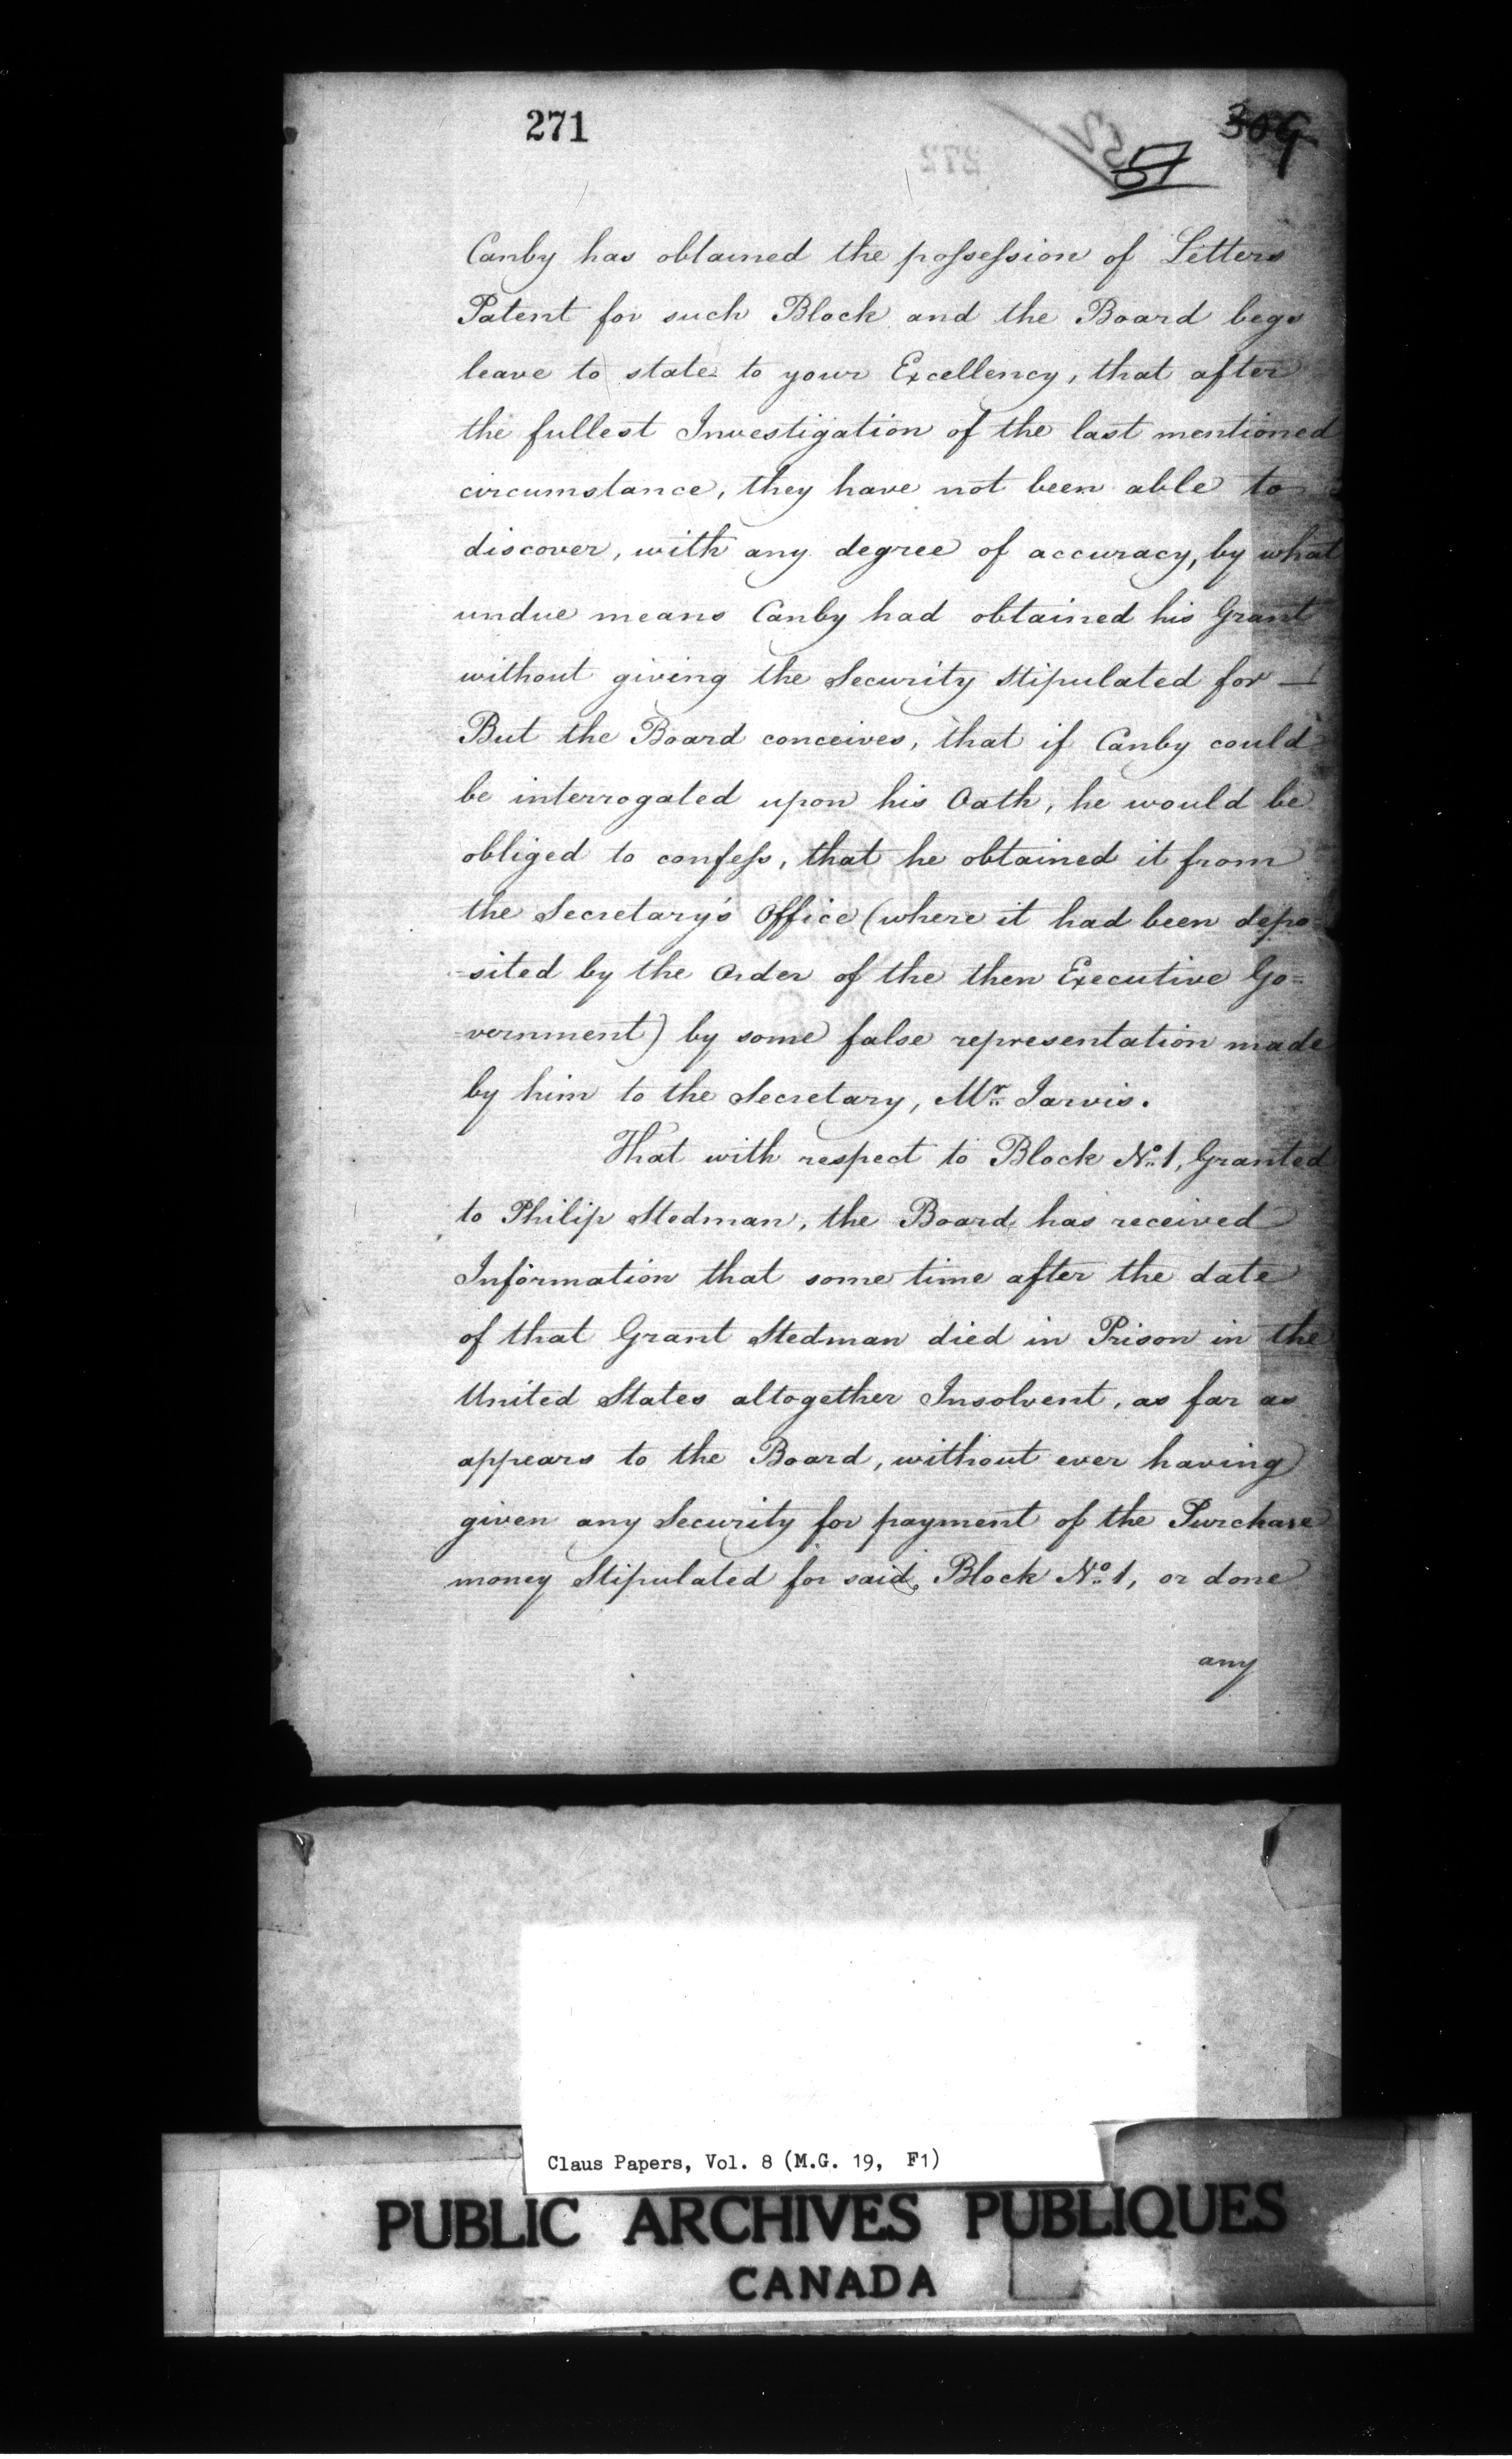 271
309
57
Canby has obtained the possession of Letters
Patent for such Block and the Board begs
leave to state to your Excellency, that after
the fullest Investigation of the last mentioned
circumstance, they have not been able to
discover, with any degree of accuracy, by what
undue means Canby had obtained his Grant
without giving the Security Stipulated for —
But the Board conceives, that if Canby could
be interrogated upon his Oath, he would be
obliged to confess, that he obtained it from
the Secretary's Office (where it had been depo=
=sited by the Order of the then Executive Go=
=vernment) by some false representation made
by him to the Secretary, Mr. Jarvis.
That with respect to Block No. 1, Granted
to Philip Stedman, the Board has received
Information that some time after the date
of that Grant Stedman died in Prison in the
United States altogether Insolvent, as far as
appears to the Board, without ever having
given any Security for payment of the Purchase
money Stipulated for said Block No. 1, or done
any
Claus Papers, Vol. 8 (M.G. 19, F1)
PUBLIC ARCHIVES PUBLIQUES
CANADA